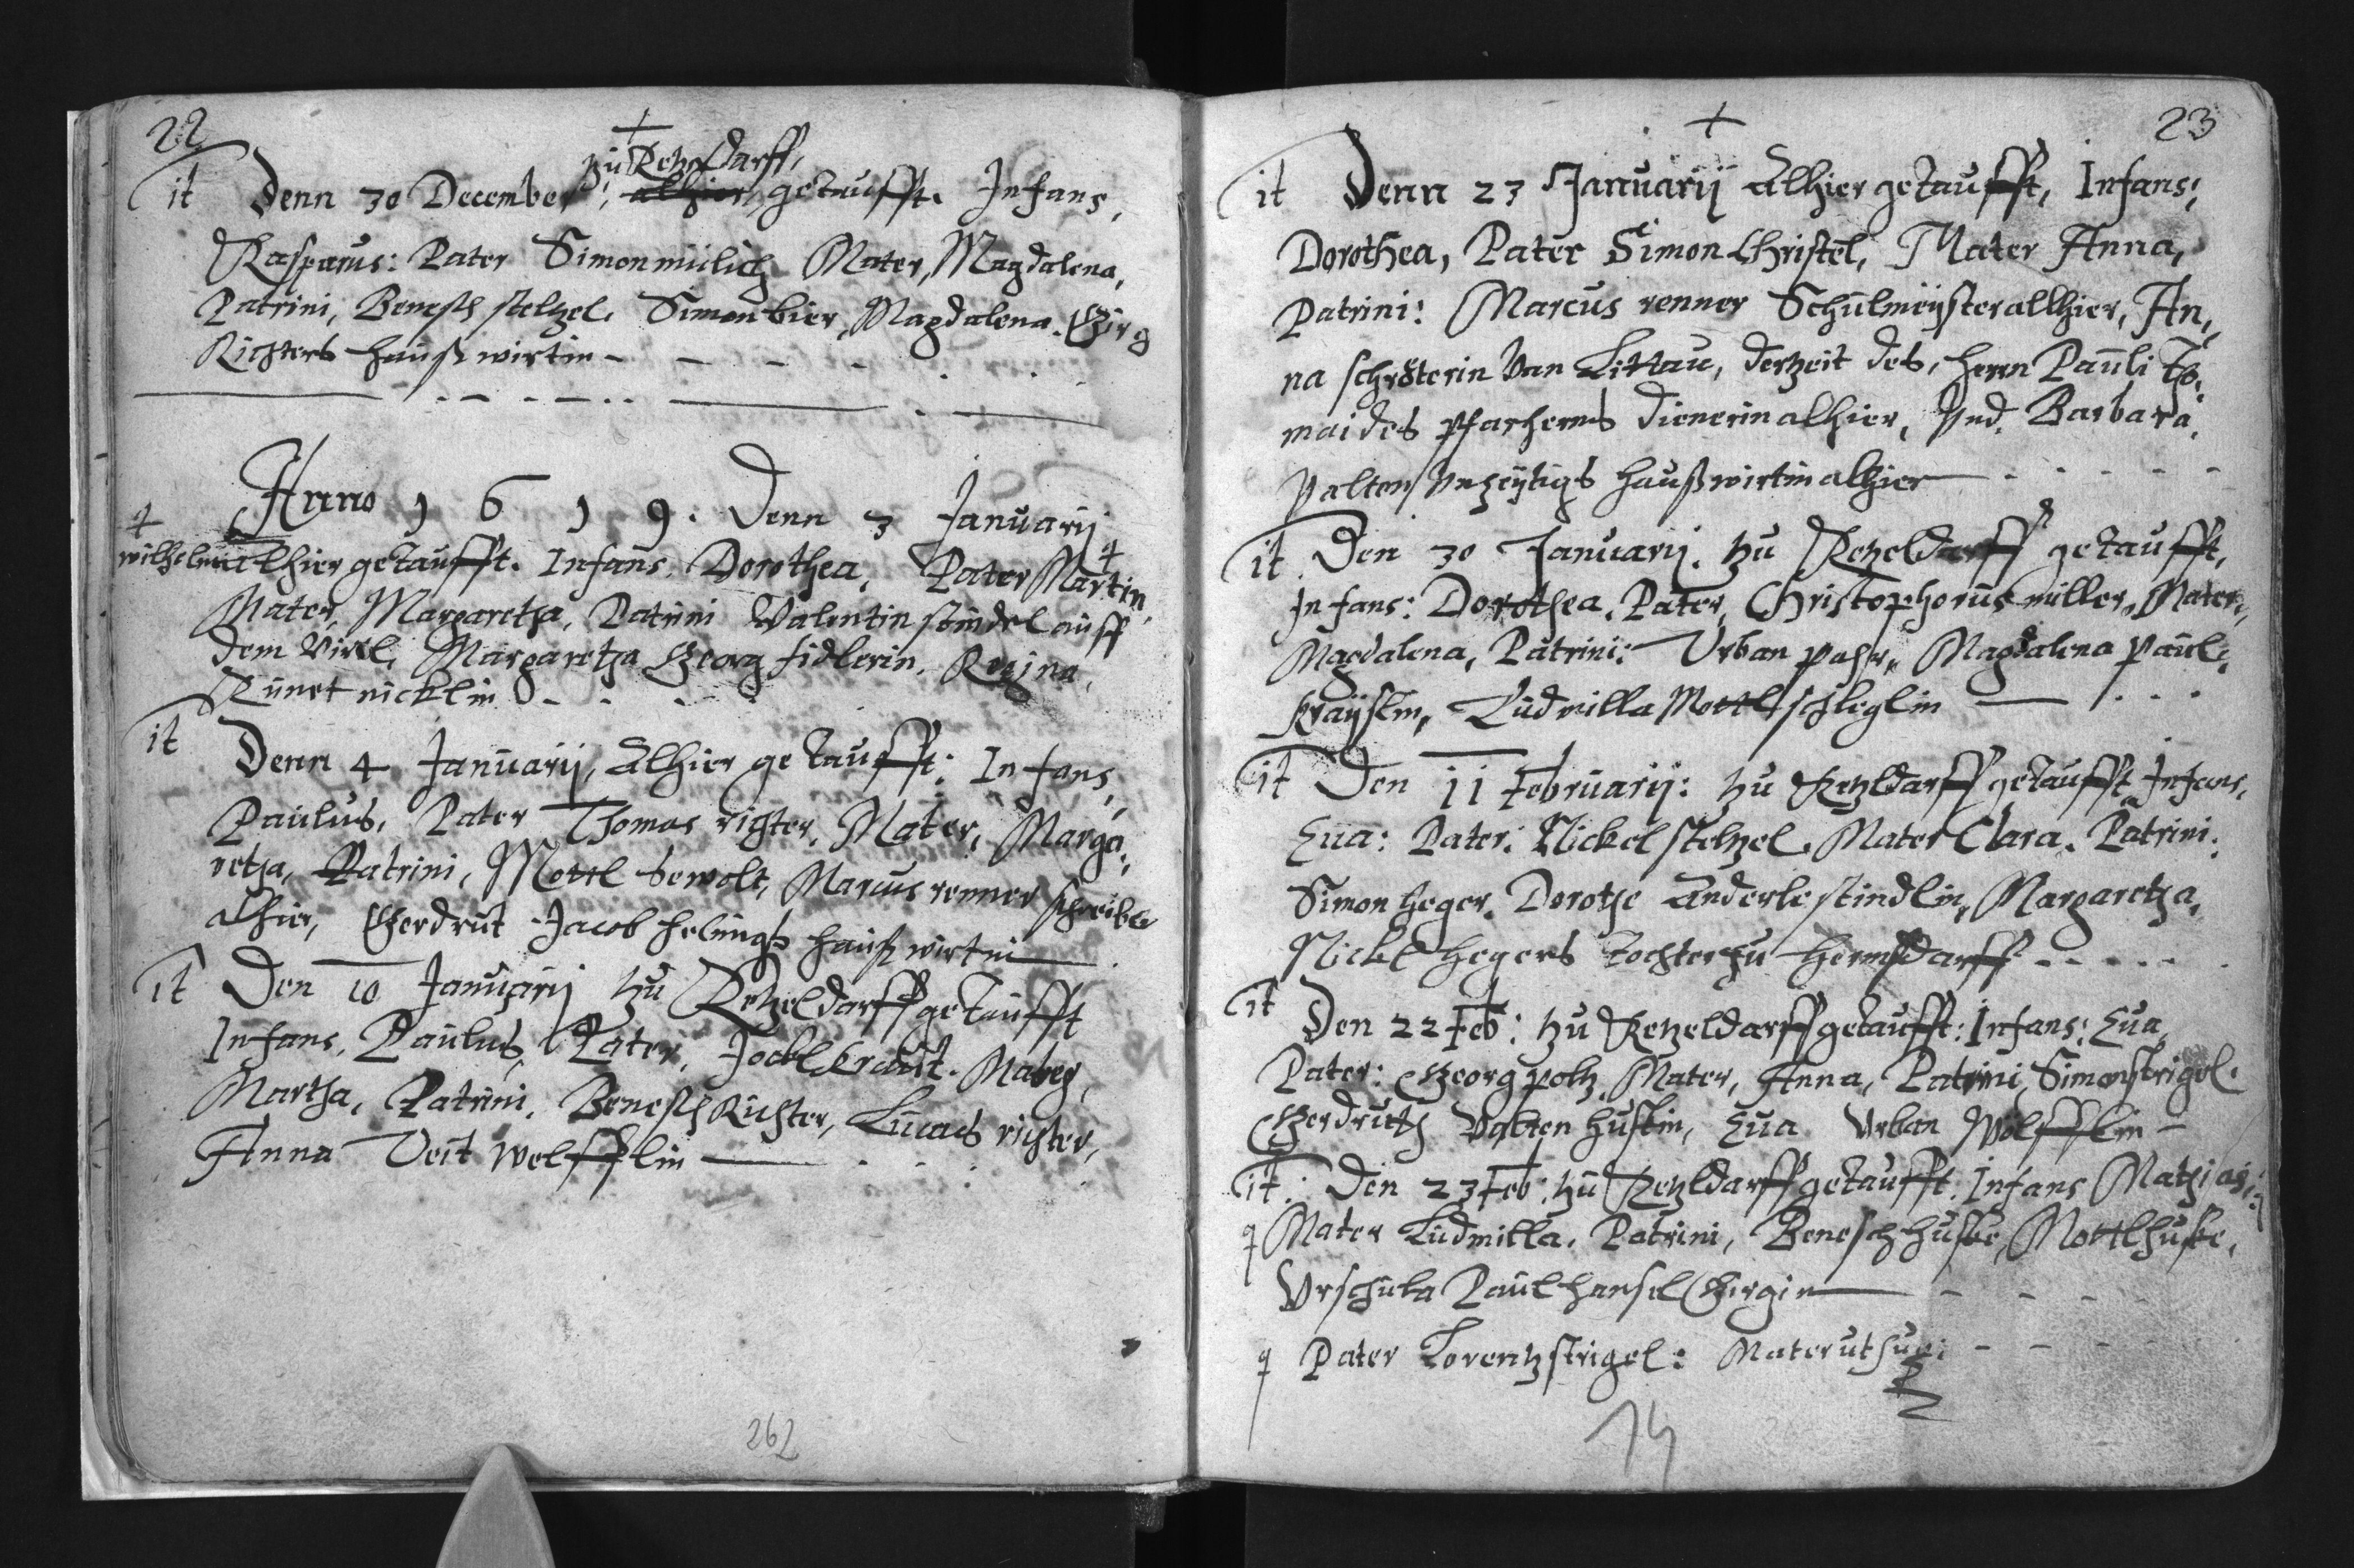 22
zu Retzsdarff,
it Denn 30 December, alhier getaufft. Infans,
Kasparus: Pater Simon mülich Mater, Magdalena,
Patrini, Benesch stelzel. Simon bier, Magdalena. Girg
Richters haußwirtin
Anno 1619. Denn 3 Januarij
wilhelm
Alhier getaufft. Infans, Dorothea, Pater Martin,
Mater, Margaretha, Patrini Valentin stindel auff
dem Virtl, Margaretha Georg fidlerin, Regina,
Kunert nicklin
it Denn 4 Januarij, Alhier getaufft: Infans,
Paulus, Pater Thomas rigter, Mater, Marga,
retha, Patrini, Mottl Sewolt, Marcus renner schreiber
alhier, Gerdrut Jacob helings haußwirtin
it Den 10 Januarij zu Retzeldarff getaufft
Infans, Paulus, Pater, Jockl kraust. Mater,
Martha, Patrini, Benesch Richter, Lucas richter,
Anna Veit welfflin
262
23
it Denn 23 Januarij Alhier getaufft, Infans,
Dorothea, Pater Simon Christel, Mater Anna,
Patrini: Marcus renner Schulmeyster allhier, An,
na schröterin Van Littau, derzeit des, herrn Pauli Tho,
mai des pfarherns dienerin alhier, Vnd, Barbara,
Valten Vnzeytigs haußwirtin alhier
it Den 30 Januarij. zu Retzeldarff getaufft,
Infans: Dorothea. Pater, Christophorus miller, Mater,
Magdalena, Patrini: Urban pahr, Magdalena paul,
krayslin, Ludmilla Mottl schleglin
it Den 11 Februarij: zu Retzldarff getaufft Infans,
Eua: Pater: Nickel stelzel. Mater Clara. Patrini:
Simon heger. Dorothe Anderle stindlin, Margaretha,
Nickl hegers tochter zu hermsdarff
it Den 22 Feb: zu Retzeldarff getaufft: Infans: Eua
Pater: Georg poltz Mater, Anna, Patrini, Simon strigel.
Gerdruth Valten huskin, Eua Urban Wolfflin
it: Den 23 Feb: zu Retzldarff getaufft. Infans Mathias,
Mater Ludmilla. Patrini, Benesch huske, Mottl huske,
Urschula Paul hansel Girgin
Pater Lorentz strigel: Mater ut supi
14